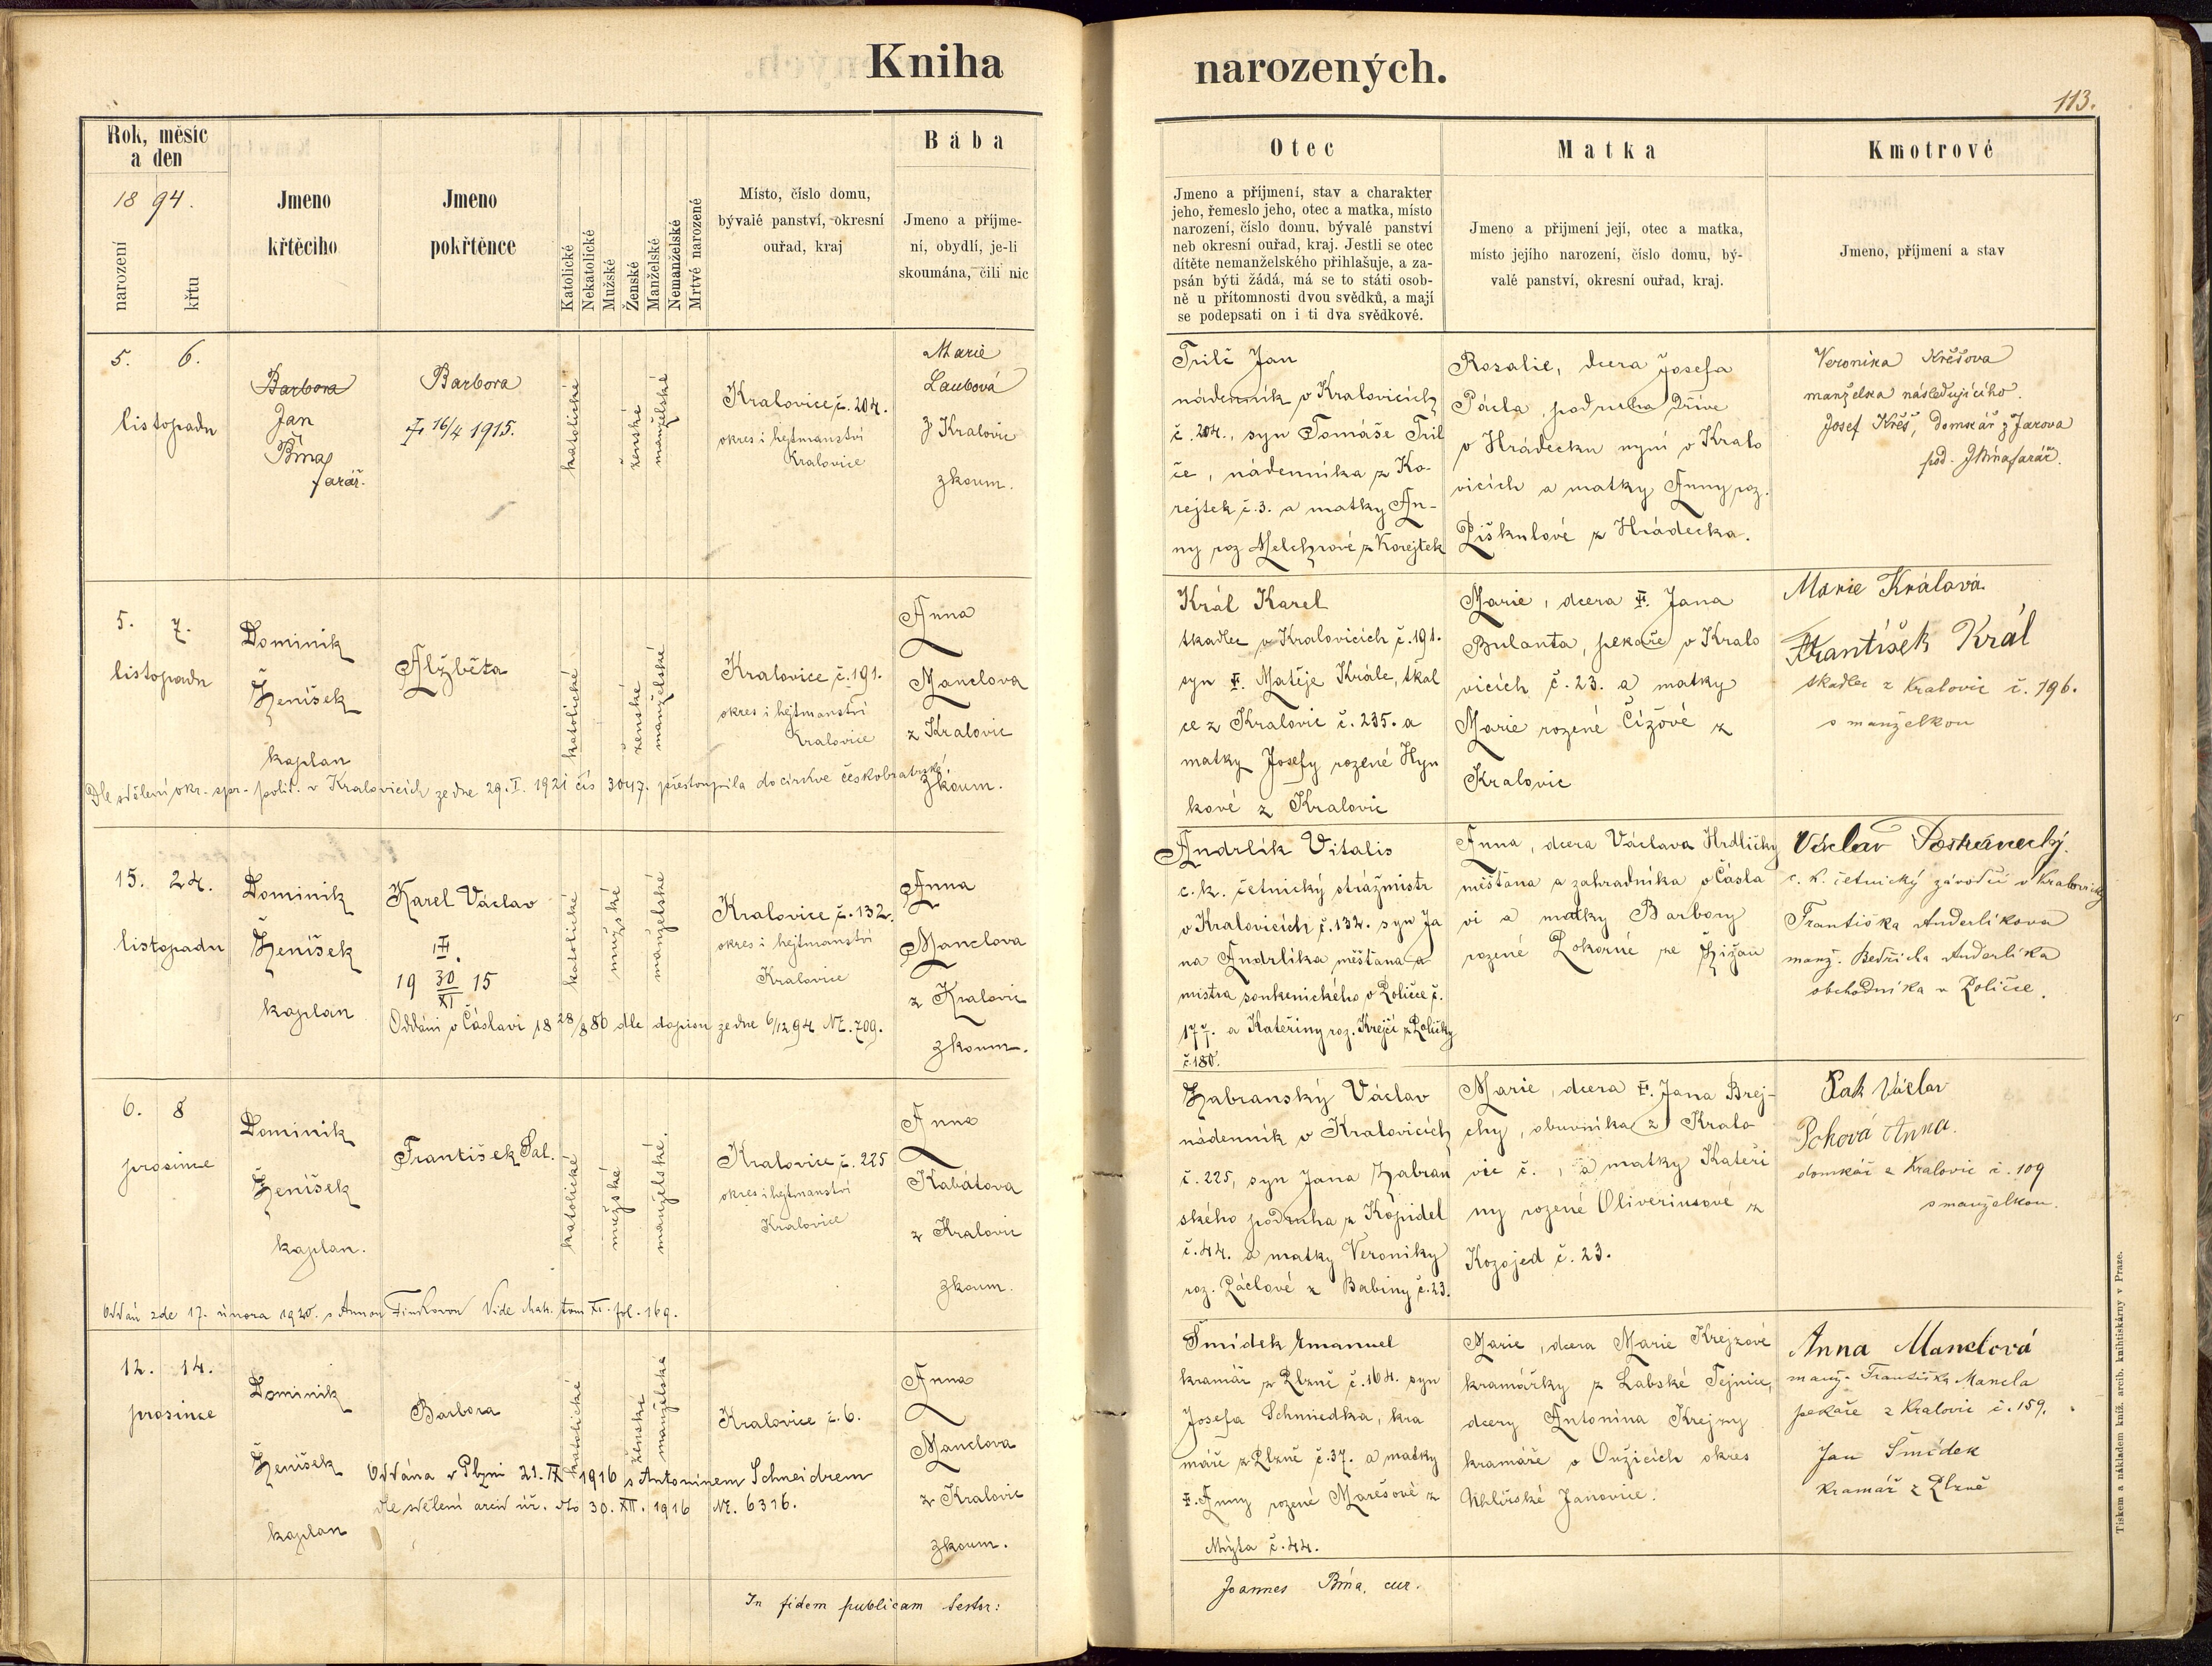 Kniha narozených.
113.
Rok, měsíc
a den
18 94.
narození
křtu
Jmeno
křtěcího
Jmeno
pokřtěnce
Katolické
Nekatolické
Mužské
Ženské
Manželské
Nemanželské
Mrtvě narozené
Místo, číslo domu,
bývalé panství, okresní
ouřad, kraj
Bába
Jmeno a příjme-
ní, obydlí, je-li
skoumána, čili nic
Otec
Jmeno a příjmení, stav a charakter
jeho, řemeslo jeho, otec a matka, místo
narození, číslo domu, bývalé panství
neb okresní ouřad, kraj. Jestli se otec
dítěte nemanželského přihlašuje, a za-
psán býti žádá, má se to státi osob-
ně u přítomnosti dvou svědků, a mají
se podepsati on i ti dva svědkové.
Matka
Jmeno a přijmení její, otec a matka,
místo jejího narození, číslo domu, bý-
valé panství, okresní ouřad, kraj.
Kmotrové
Jmeno, příjmení a stav
5. 6.
listopadu
Barbora
Jan
Brna
farář.
Barbora
16/4 1915.
katolické
ženské
manželské
Kralovice č. 204.
okres i hejtmanství
Kralovice
Marie
Laubová
z Kralovic
zkoum.
Trilč Jan
nádenník v Kralovicích
č. 204., syn Tomáše Tril
če, nádenníka z Ko-
rejtek č. 3. a matky An-
ny roz. Melchrové z Korejtek
Rozalie, dcera Josefa
Pácla, podruha dříve
v Hrádecku nyní v Kralo
vicích a matky Anny roz.
Piškulové z Hrádecka.
Veronika Křešova
manželka následujícího.
Josef Křeš, domkář z Jarova
pod. J Brňa farář.
5. 7.
listopadu
Dominik
Ženíšek
kaplan
Alžběta
katolické
ženské
manželské
Kralovice č. 191.
okres i hejtmanství
Kralovice
Anna
Manclova
z Kralovic
zkoum.
Dle sdělení okr. spr. polit. v Kralovicích ze dne 29. I. 1921 čís 3047. přestoupila do církve českobratrské.
Král Karel
tkadlec v Kralovicích č. 191.
syn Matěje Krále, tkal
ce z Kralovic č. 235. a
matky Josefy rozené Hyn
kové z Kralovic
Marie, dcera Jana
Bulanta, pekaře v Kralo
vicích č. 23. a matky
Marie rozené Čížové z
Kralovic
Marie Králová.
František Král
tkadlec z Kralovic č. 196.
s manželkou
15. 24.
listopadu
Dominik
Ženíšek
kaplan
Karel Václav
19 30/XI 15
katolické
mužské
manželské
Kralovice č. 132.
okres i hejtmanství
Kralovice
Anna
Manclova
z Kralovic
zkoum.
Oddáni v Čáslavi 18 28/8 86 dle dopisu ze dne 6/12 94 Nē. 709.
Andrlík Vitalis
c. k. četnický strážmistr
v Kralovicích č. 132. syn Ja
na Andrlíka měšťana a
mistra soukenického v Poličce č.
177. a Kateřiny roz. Krejčí z Poličky
č. 180.
Anna, dcera Václava Hrdličky
měšťana a zahradníka v Čásla
vi a matky Barbory
rozené Pokorné ze Žižan
Václav
c. k. četnický závodčí v Kralovicích
Františka Anderlíkova
manž. Bedřicha Anderlíka
obchodníka v Poličce.
6. 8
prosince
Dominik
Ženíšek
kaplan.
František Sal.
katolické
mužské
manželské.
Kralovice č. 225
okres i hejtmanství
Kralovice
Anna
Kabátova
z Kralovic
zkoum.
Oddán zde 17. února 1920. s Annou Finkovou Vide Mak. tom XI. fol. 169.
Zabranský Václav
nádenník v Kralovicích
č. 225, syn Jana Zabran
ského podruha z Kopidel
č. 44. a matky Veroniky
roz. Páclové z Babiny č. 23.
Marie, dcera Jana Brej-
chy, obuvníka z Kralo
vic č. , a matky Kateři
ny rozené Oliveriusové z
Kozojed č. 23.
Pak Václav
Poková Anna.
domkář z Kralovic č. 109
s manželkou.
12. 14.
prosince
Dominik
Ženíšek
kaplan
Barbora
katolické
ženské
manželské
Kralovice č. 6.
Anna
Manclova
z Kralovic
zkoum.
Oddána v Plzni 21. IX 1916 s Antonínem Schneidrem
dle sdělení arcid úř. dto 30. XII. 1916 Nē. 6316.
Šmídek Emanuel
kramář z Plzně č. 164. syn
Josefa Schmiedka, kra
máře z Plzně č. 37. a matky
Anny rozené Marešové z
Mýta č. 44.
Marie, dcera Marie Krejzové
kramářky z Labské Tejnice,
dcery Antonína Krejzy
kramáře v Onžicích okres
Uhlířské Janovice.
Anna Manclová
manž. Františka Mancla
pekaře z Kralovic č. 159.
Jan Šmídek
kramář z Plzně
In fidem publicam testor:
Joannes Brňa, cur.
Tiskem a nákladem kníž. arcib. knihtiskárny v Praze.